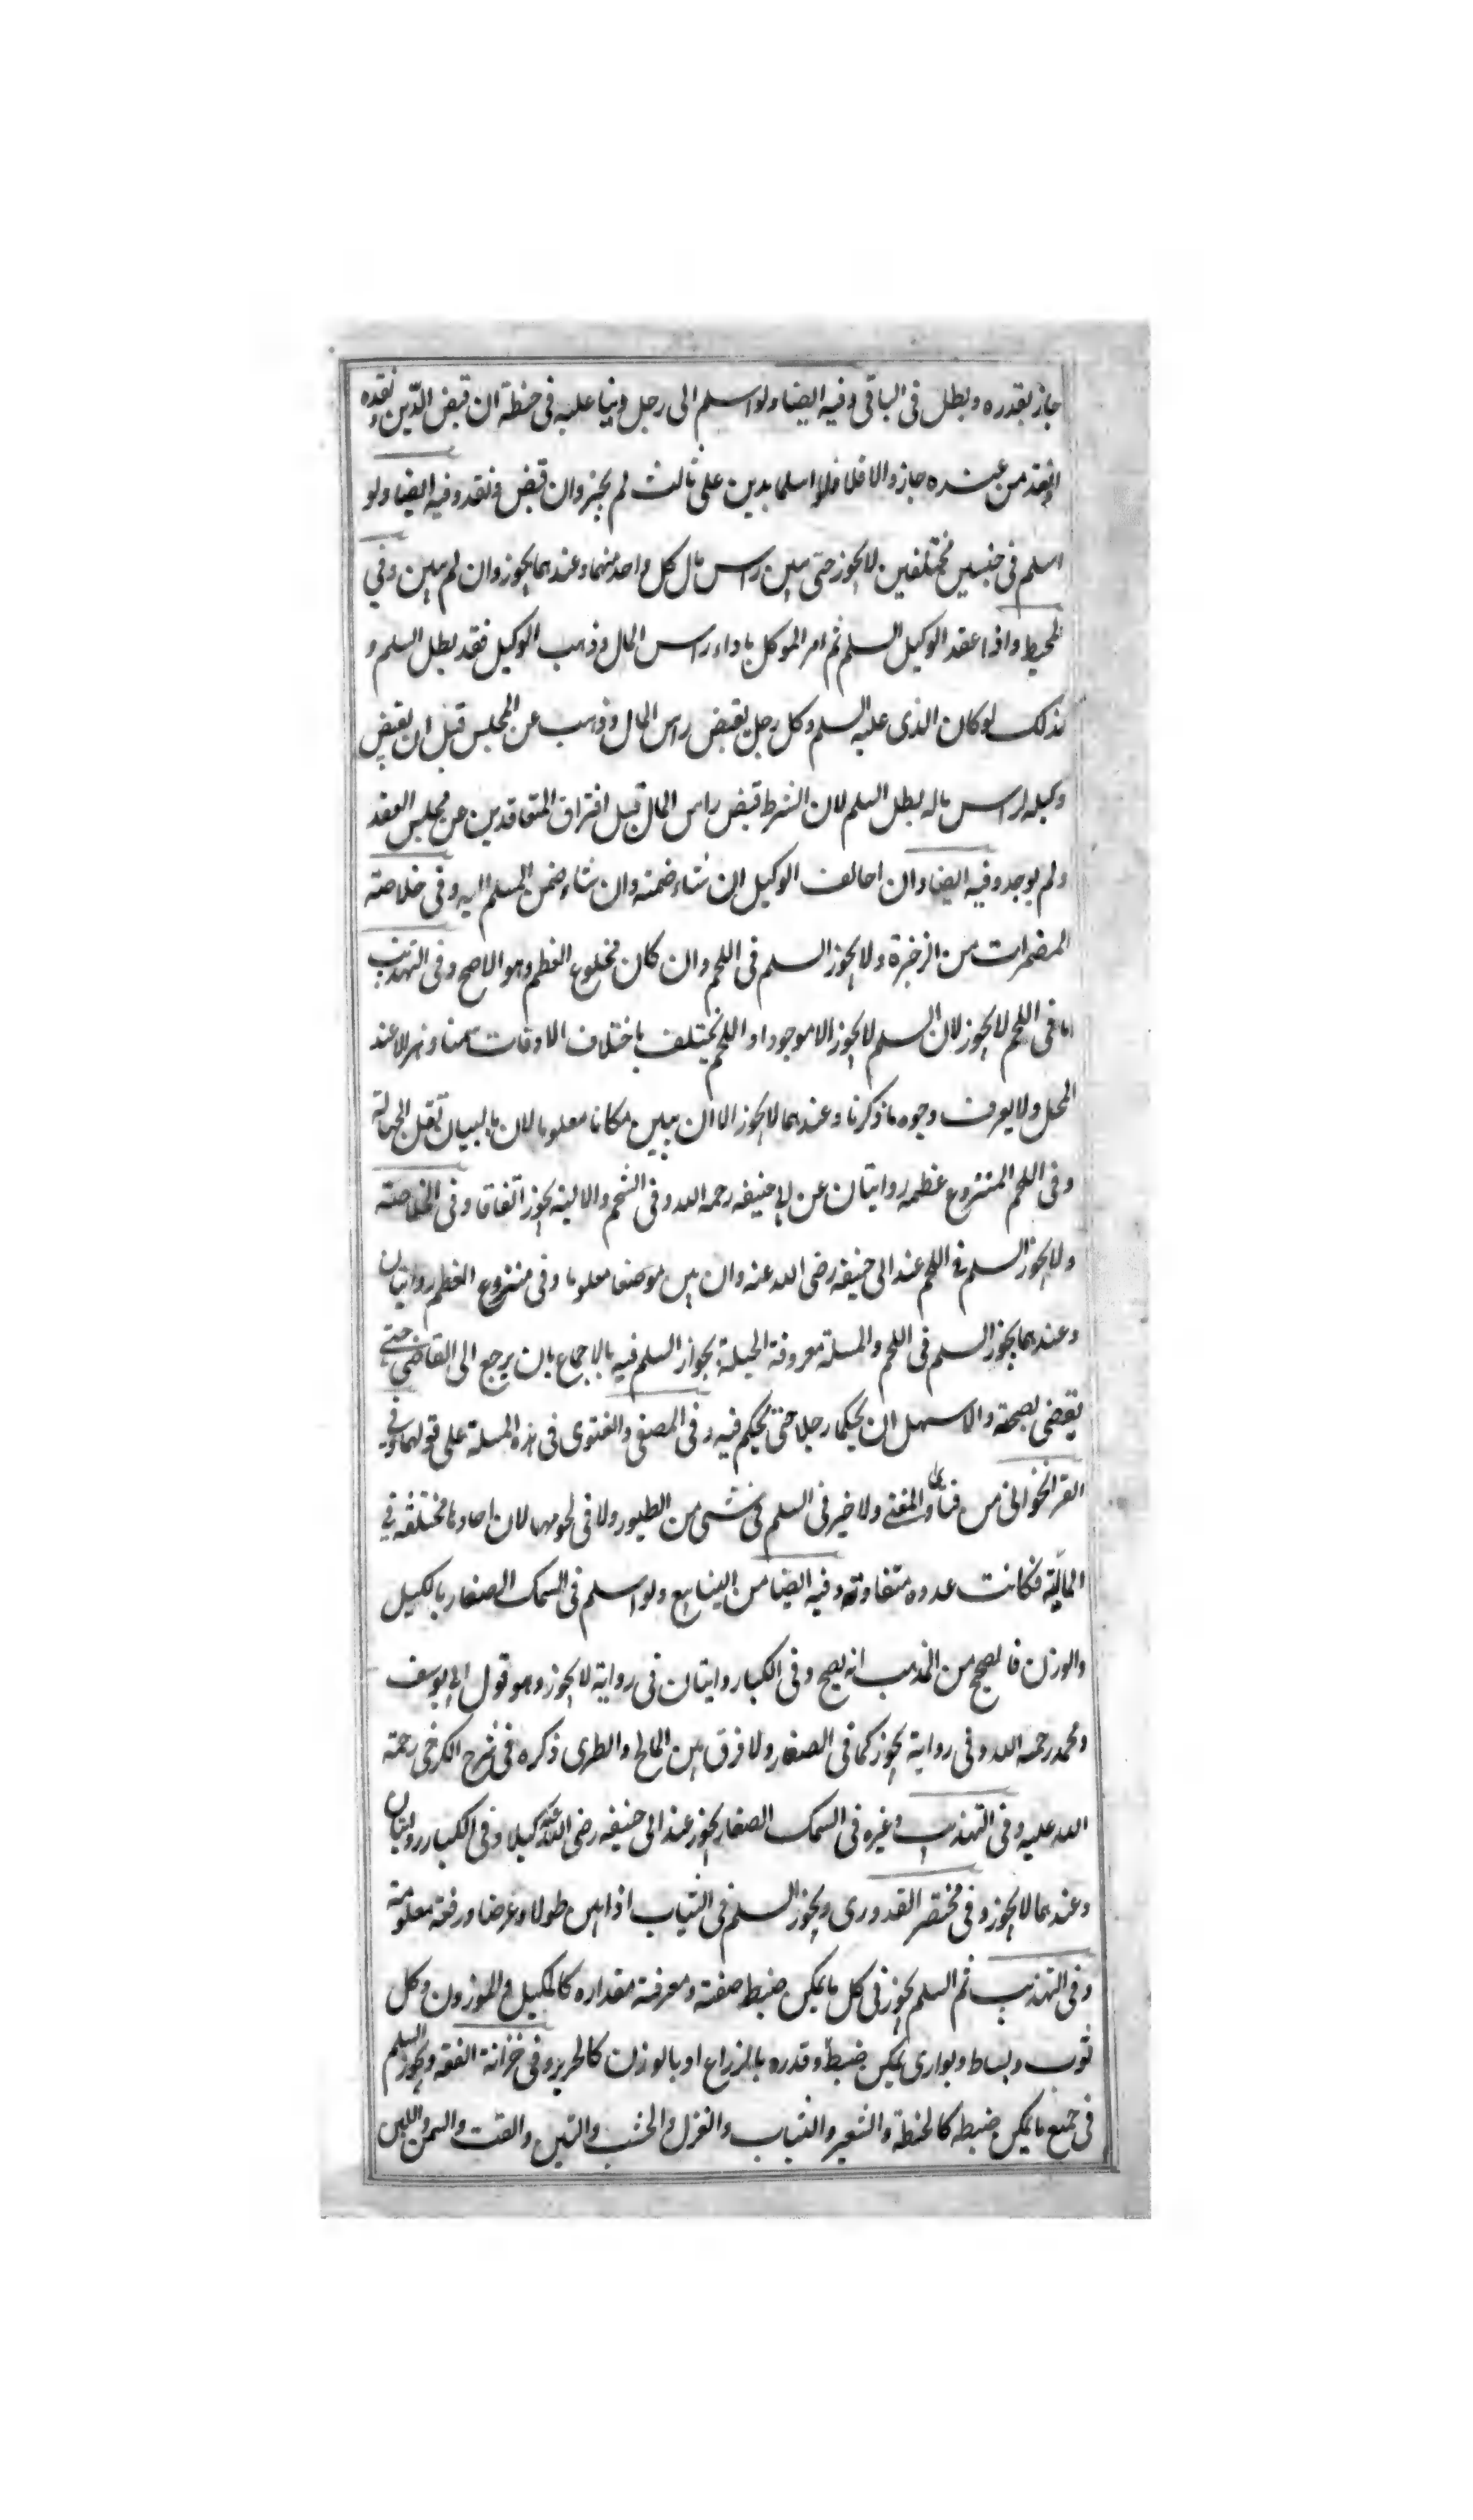 جاز بقدره وبطل فى الباقى وفيه ايضا ولو اسلم الى رجل دينا عليه فى حنطة ان قبض الدّين ونقده
او نقد من عنده جاز والا فلا ولو اسلما بدين على ثالث لم يجز وان قبض ونقد وفيه ايضا ولو
اسلم فى جنسين مختلفين لا يجوز حتى يبين راس مال كل واحد منهما وعندهما يجوز وان لم يبين وفي
المحيط واذا عقد الوكيل السلم ثم امر الموكل باداء راس المال وذهب الوكيل فقد بطل السلم و
كذلك لو كان الذى عليه السلم وكل رجل بقبض راس المال وذهب عن المجلس قبل ان يقبض
وكيله راس ماله بطل السلم لان الشرط قبض راس المال قبل افتراق المتعاقدين عن مجلس العقد
ولم يوجد وفيه ايضا وان خالف الوكيل ان شاء ضمنه وان شاء ضمن المسلم اليه وفى خلاصته
المضمرات من الزخيرة ولا يجوز السلم فى اللحم وان كان مخلوع العظم وهو الاصح وفى التهذيب
اما فى اللحم لا يجوز لان السلم لا يجوز الا موجودا واللحم يختلف باختلاف الاوقات سمنا وهزلا عند
المحل ولا يعرف وجوه ما ذكرنا وعندهما لا يجوز الا ان يبين مكانا معلوما لان بالبيان تقل الجهالة
وفى اللحم المنزوع عظمه روايتان عن ابي حنيفه رحمه الله وفى الشحم والاليه يجوز اتفاقا وفى الخلاصته
ولا يجوز السلم في اللحم عند ابى حنيفه رضى الله عنه وان بين موضعا معلوما وفى منزوع العظم روايتان
وعندهما يجوز السلم فى اللحم والمسلة معروفة الحيلة بجواز السلم فيه بالاجماع بان يرجع الى القاضى حتى
يقضى بصحة والاسهل ان يحكما رجلا حتى يحكم فيه وفى المصفى والفتوى فى هذه المسلة على قولهما وفي
القراخوانى من فتاوى المفتى ولا خير فى السلم فى شى من الطيور ولا فى لحومها لان احادها مختلفه في
الماليّة فكانت عدده متفاوته وفيه ايضا من الينابيع ولو اسلم فى السمك الصغار بالكيل
والوزن فالصحيح من المذهب انه يصح وفى الكبار روايتان فى رواية لا يجوز وهو قول ابي يوسف
ومحمد رحمه الله وفى رواية يجوز كما فى الصغار ولا فرق بين المالح والطرى ذكره فى شرح الكرخى رحمة
الله عليه وفى التهذيب وغيره فى السمك الصغار يجوز عند ابى حنيفه رضى الله عنه كيلا وفى الكبار روايتان
وعندهما لا يجوز وفى مختصر القدورى ويجوز السلم فى الثياب اذا بين طولا وعرضا ورقعة معلومة
وفى التهذيب ثم السلم يجوز فى كل ما يمكن ضبط صفته ومعرفته مقداره كالمكيل والموزون وكل
ثوب وبساط وبوارى يمكن ضبط وقدره بالزراع او بالوزن كالحرير وفى خزانة الفقه ويجوز السلم
فى جميع ما يمكن ضبطه كالحنطة والشعير والثياب والغزل والخشب والتبن والقت والسمن واللبن